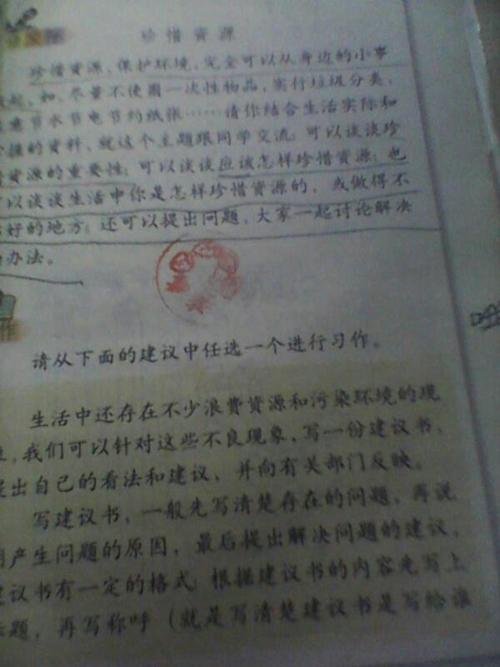 珍惜资源
珍惜资源、保护环境,完全可以从身边的小事
做起。如,尽量不使用一次性物品,实行垃圾分类,
意节水节电节约纸张……请你结合生活实际和
的资料,就这个主题跟同学交流:可以谈谈珍
资源的重要性;可以谈谈应该怎样珍惜资源;也
以谈谈生活中你是怎样珍惜资源的,或做得不
好的地方;还可以提出问题,大家一起讨论解决
办法。
请从下面的建议中任选一个进行习作。
生活中还存在不少浪费资源和污染环境的现
,我们可以针对这些不良现象,写一份建议书,
提出自己的看法和建议,并向有关部门反映。
写建议书,一般先写清楚存在的问题,再说
明产生问题的原因,最后提出解决问题的建议。
议书有一定的格式:根据建议书的内容先写上
标题,再写称呼(就是写清楚建议书是写给谁